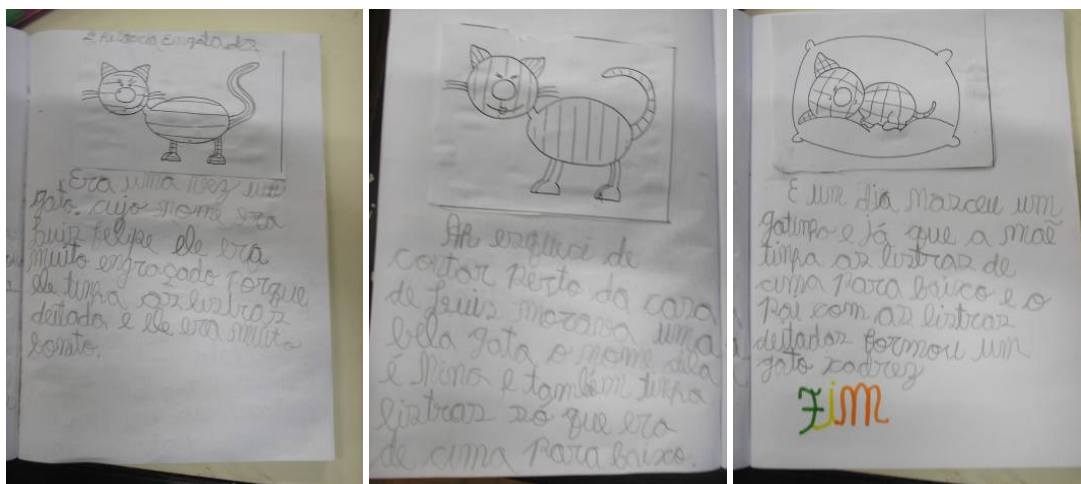 Era uma vez um
gato, cujo nome era
Luiz Felipe ele era
muito engraçado porque
ele tinha as listras
deitada e ele era muito
bonito.
Ah esqueci de
contar perto da casa
de Luis morava uma
bela gata o nome dela
é Nina e também tinha
listras só que era
de cima para baixo.
E um dia nasceu um
gatinho e já que a mãe
tinha as listras de
cima para baixo e o
pai com as listras
deitadas formou um
gato xadrez
FIM